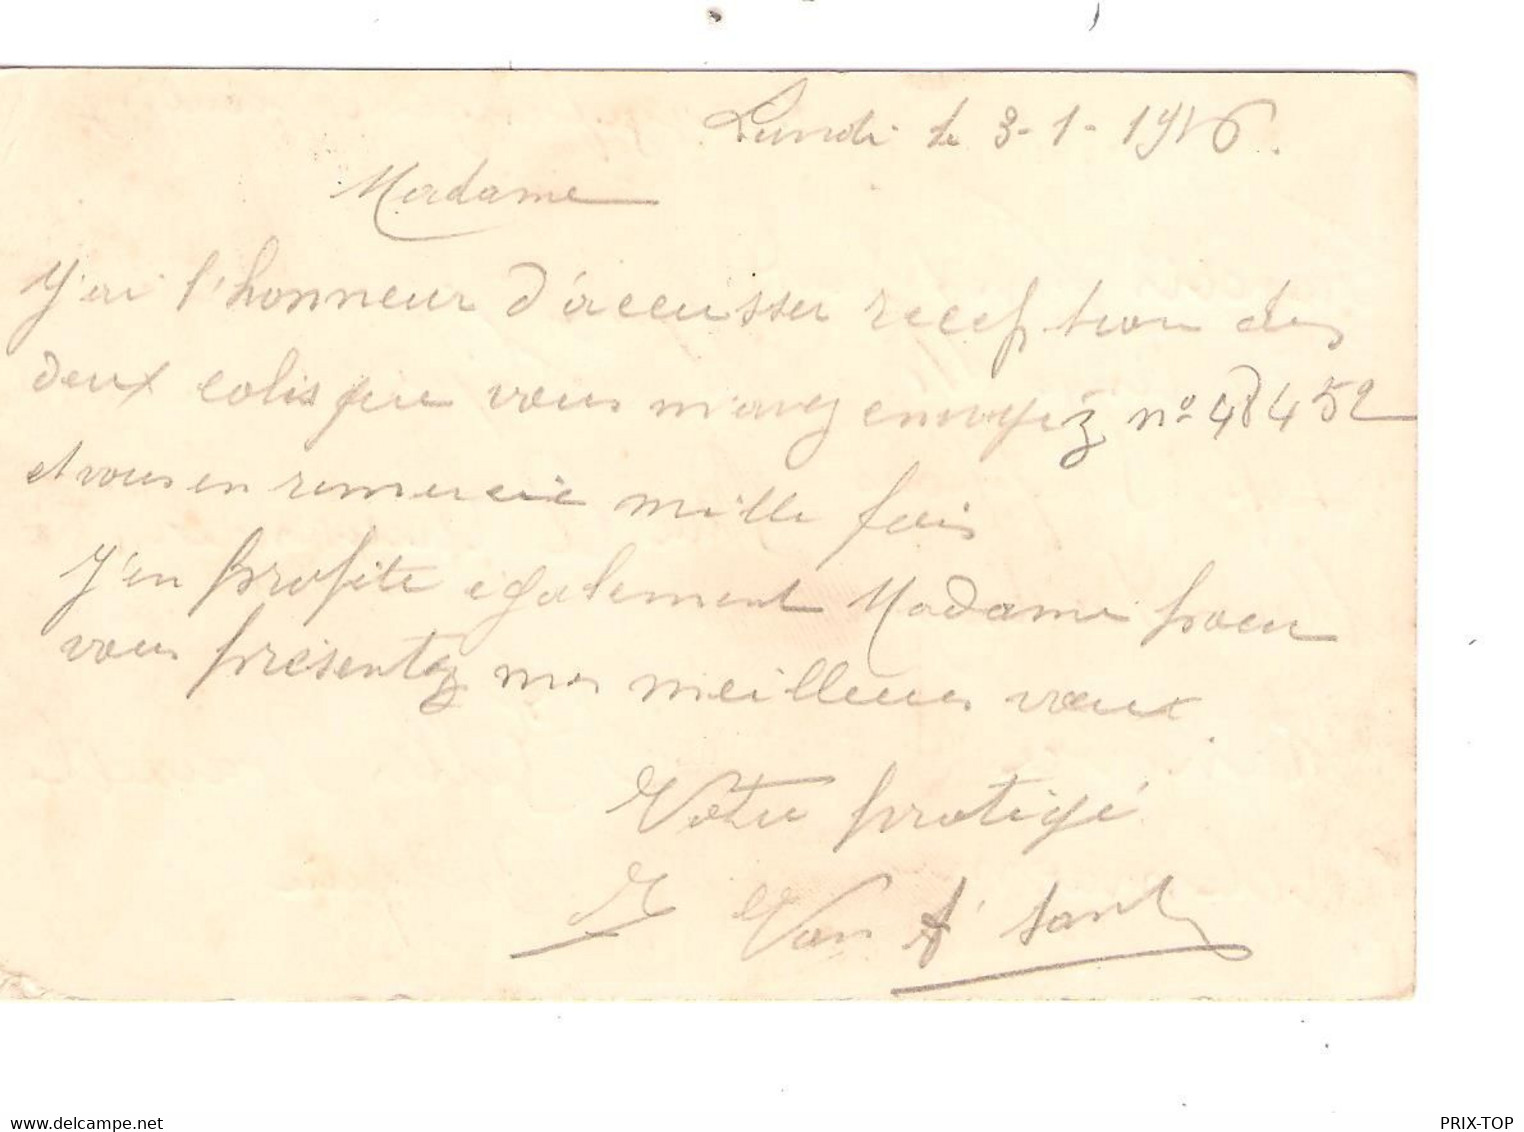 Lundi le 3-1-1916.
Madame
J'ai l'honneur d'accusser reception des
deux colis que vous m'avez envoyéz nº 48452
et vous en remercie mille fois
J'en profite également Madame pour
vous présentez mes meilleurs vœux.
Votre protégé
Van
www.delcampe.net
PRIX-TOP